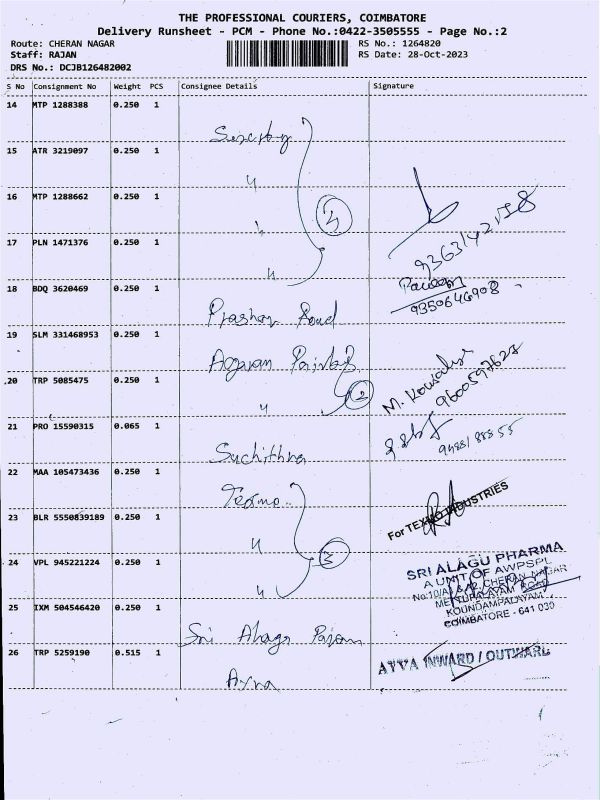 THE PROFESSIONAL COURIERS, COIMBATORE
Delivery Runsheet - PCM - Phone No.:0422-3505555 - Page No.:2
Route: CHERAN NAGAR RS No.: 1264820
Staff: RAJAN RS Date: 28-Oct-2023
DRS No.: DCJB126482002
S No Consignment No Weight PCS Consignee Details Signature
14 MTP 1288388 0.250 1
15 ATR 3219097 0.250 1
〃
16 MTP 1288662 0.250 1
〃
17 PLN 1471376 0.250 1
〃
18 BDQ 3620469 0.250 1
9350646908
19 SLM 331468953 0.250 1
20 TRP 5085475 0.250 1
〃 2
M. Kowsalya
9600597627
21 PRO 15590315 0.065 1
Suchithra
22 MAA 105473436 0.250 1
Texmo
For TEXMO INDUSTRIES
23 BLR 5550839189 0.250 1
〃 3
24 VPL 945221224 0.250 1
〃
SRI ALAGU PHARMA
A UNIT OF AWPSPL
CHERAN NAGAR
METTUPALAYAM ROAD
KOUNDAMPALAYAM
COIMBATORE - 641 030
25 IXM 504546420 0.250 1
Sri Alagu
26 TRP 5259190 0.515 1
Ayya
AYYA INWARD / OUTWARD